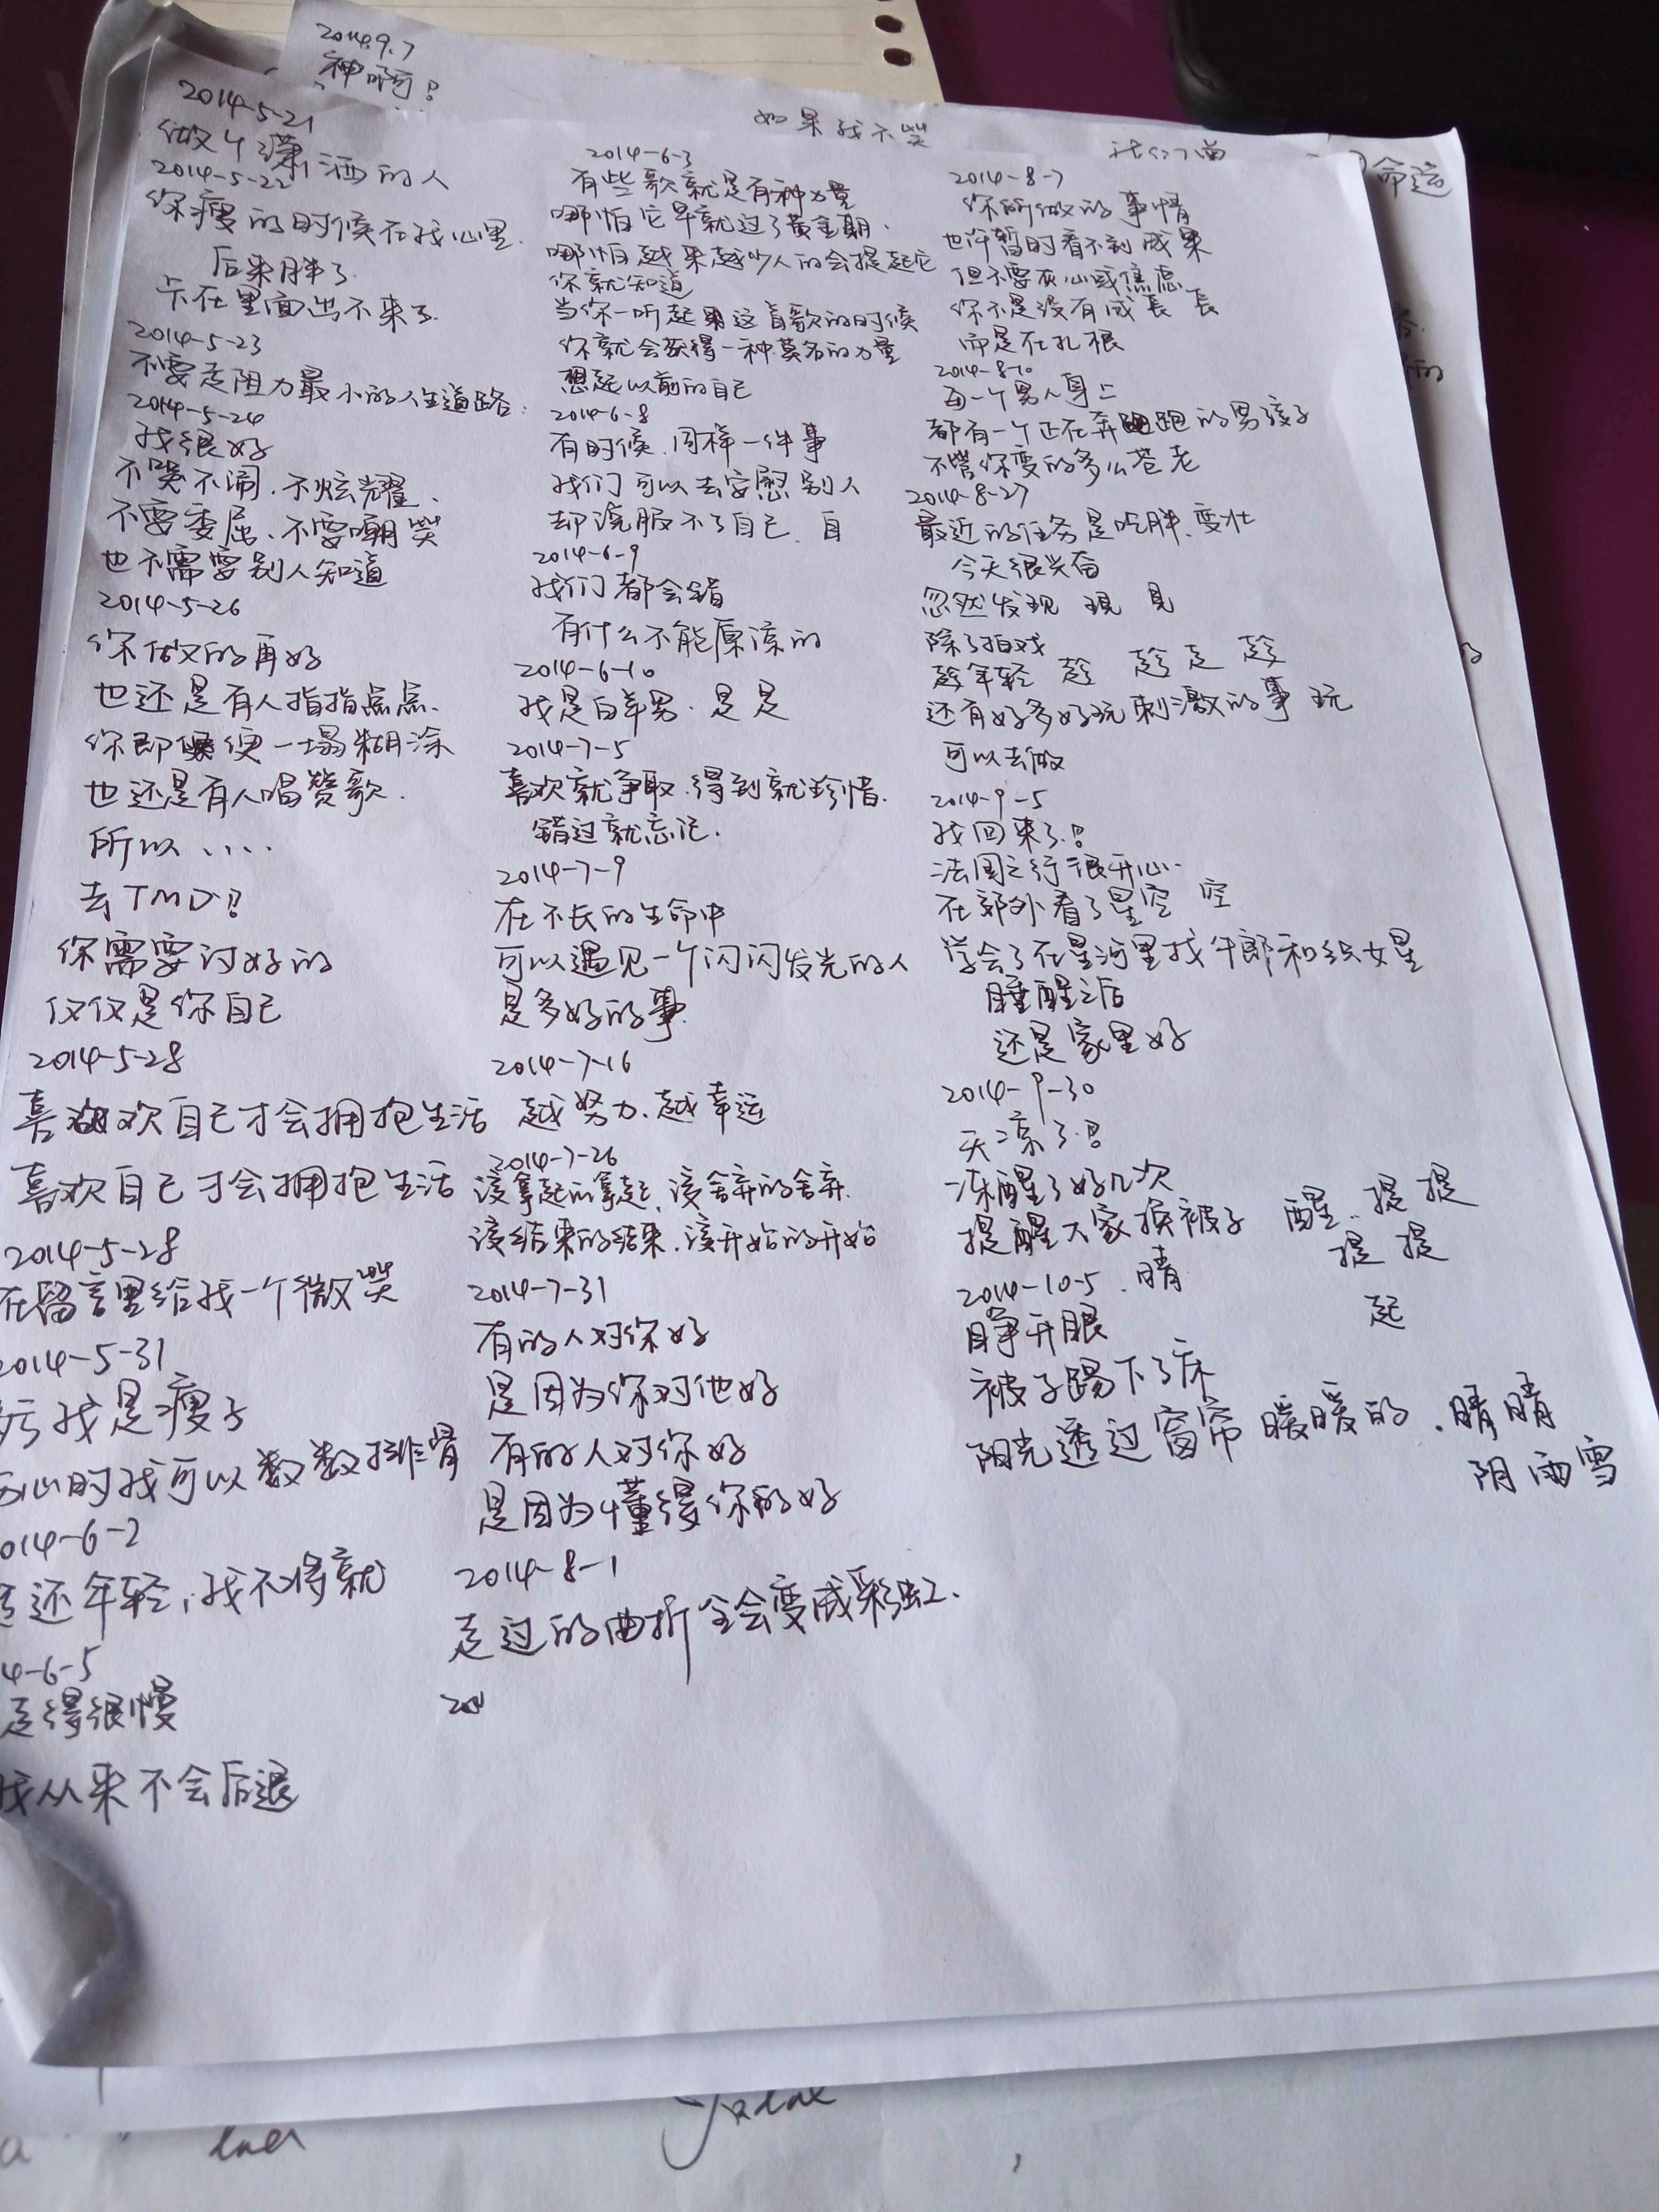 2014.9.7
神啊！
如果我不笑
命运
2014-5-21
做个潇洒的人
2014-5-22
你瘦的时候在我心里.
后来胖了.
卡在里面出不来了.
2014-5-23
不要走阻力最小的人生道路.
2014-5-24
我很好
不哭不闹.不炫耀、
不要委屈、不要嘲笑
也不需要别人知道
2014-5-26
你做的再好
也还是有人指指点点.
你即便一塌糊涂
也还是有人唱赞歌.
所以....
去TMD!
你需要讨好的
仅仅是你自己
2014-5-28
喜欢自己才会拥抱生活
喜欢自己才会拥抱生活
2014-5-28
在留言里给我一个微笑
2014-5-31
亏我是瘦子
心时我可以数数排骨
014-6-2
还年轻,我不将就
4-6-5
走得很慢
我从来不会后退
2014-6-3
有些歌就是有种力量
哪怕它早就过了黄金期.
哪怕越来越少人的会提起它
你就知道
当你一听起这首歌的时候
你就会获得一种莫名的力量
想起以前的自己
2014-6-8
有时候.同样一件事
我们可以去安慰别人
却说服不了自己.自
2014-6-9
我们都会错
有什么不能原谅的
2014-6-10
我是白羊男.是是
2014-7-5
喜欢就争取.得到就珍惜.
错过就忘记.
2014-7-9
在不长的生命中
可以遇见一个闪闪发光的人
是多好的事
2014-7-16
越努力、越幸运
2014-7-26
该拿起的拿起,该舍弃的舍弃.
该结束的结束.该开始的开始
2014-7-31
有的人对你好
是因为你对他好
有的人对你好
是因为懂得你的好
2014-8-1
走过的曲折全会变成彩虹.
201
2014-8-7
你所做的事情
也许暂时看不到成果
但不要灰心或焦虑
你不是没有成長 長
而是在扎根
2014-8-10
每一个男人身上
都有一个正在奔跑的男孩子
不管你变的多么苍老
2014-8-27
最近的任务是吃胖.变壮
今天很兴奋
忽然发现 現 見
除了拍戏
趁年轻 趁 趁 走 趁
还有好多好玩刺激的事 玩
可以去做
2014-9-5
我回来了!
法国之行很开心.
在郊外看了星空 空
学会了在星河里找牛郎和织女星
睡醒之后
还是家里好
2014-9-30
天凉了!
冻醒了好几次
提醒大家换被子 醒.提提
提 提
起
2014-10-5 .晴
睁开眼
被子踢下了床
阳光透过窗帘 暖暖的 .晴晴
阴雨雪